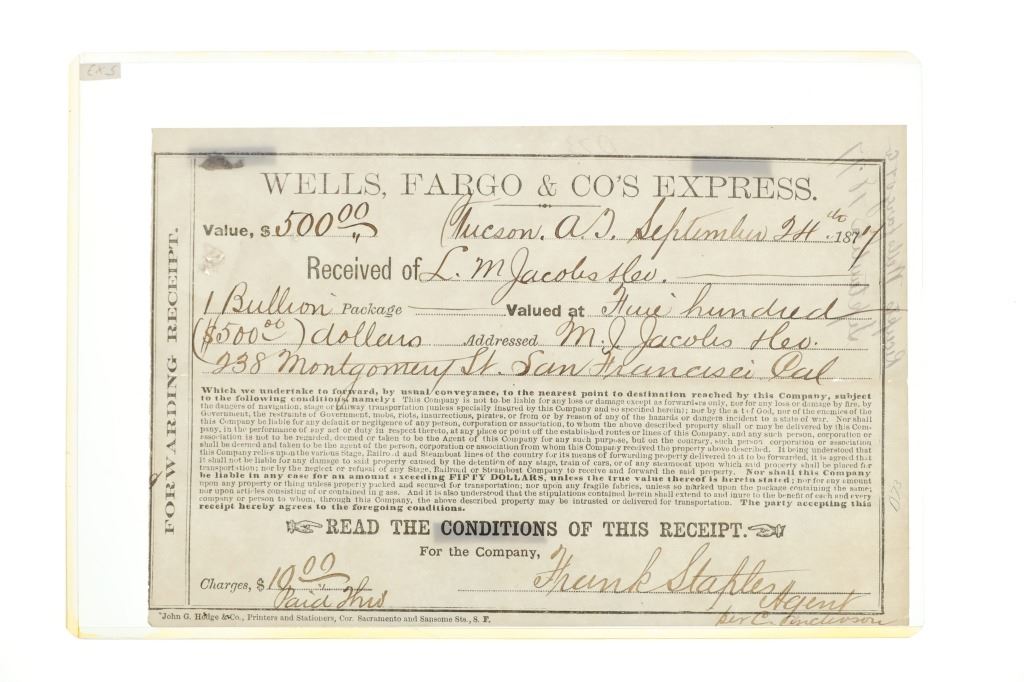 EX5
WELLS, FARGO & CO'S EXPRESS.
Value, $ 500 00/" Tucson. A.T. September 24th 1877
Received of L. M Jacobs &Co.
1 Bullion Package Valued at Five hundred
($500 00) dollars Addressed M. J. Jacobs &Co.
238 Montgomery St. San Francisci Cal
Which we undertake to forward, by usual conveyance, to the nearest point to destination reached by this Company, subject
to the following conditions, namely: This Company is not to be liable for any loss or damage except as forwarders only, nor for any loss or damage by fire, by
the dangers of navigation, stage or railway transportation (unless specially insured by this Company and so specified herein); nor by the act of God, nor of the enemies of the
Government, the restraints of Government, mobs, riots, insurrections, pirates, or from or by reason of any of the hazards or dangers incident to a state of war. Nor shall
this Company be liable for any default or negligence of any person, corporation or association, to whom the above described property shall or may be delivered by this Com-
pany, in the performance of any act or duty in respect thereto, at any place or point off the established routes or lines of this Company, and any such person, corporation or
association is not to be regarded, deemed or taken to be the Agent of this Company for any such purpose, but on the contrary, such person, corporation or association
shall be deemed and taken to be the agent of the person, corporation or association from whom this Company received the property above described. It being understood that
this Company relies upon the various Stage, Railroad and Steamboat lines of the country for its means of forwarding property delivered to it to be forwarded, it is agreed that
it shall not be liable for any damage to said property caused by the detention of any stage, train of cars, or of any steamboat upon which said property shall be placed for
transportation; nor by the neglect or refusal of any Stage, Railroad or Steamboat Company to receive and forward the said property. Nor shall this Company
be liable in any case for an amount exceeding FIFTY DOLLARS, unless the true value thereof is herein stated; nor for any amount
upon any property or thing unless properly packed and secured for transportation; nor upon any fragile fabrics, unless so marked upon the package containing the same;
nor upon articles consisting of or contained in glass. And it is also understood that the stipulations contained herein shall extend to and inure to the benefit of each and every
company or person to whom, through this Company, the above described property may be intrusted or delivered for transportation. The party accepting this
receipt hereby agrees to the foregoing conditions.
READ THE CONDITIONS OF THIS RECEIPT.
For the Company,
Charges, $ 10 00/" Frank Staples
Paid Thro Agent
per C. Anderson
John G. Hodge & Co., Printers and Stationers, Cor. Sacramento and Sansome Sts., S. F.
FORWARDING RECEIPT.